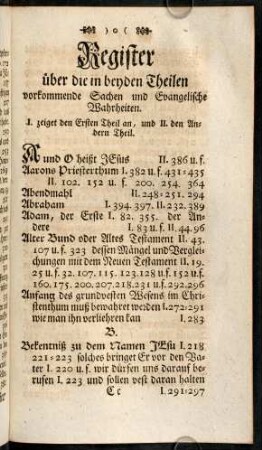 )o(
Register
über die in beyden Theilen
vorkommende Sachen und Evangelische
Wahrheiten.
I. zeiget den Ersten Theil an, und II. den An-
dern Theil.
A und O heißt JEsus II. 386 u. f.
Aarons Priesterthum I. 382 u. f. 431-435
II. 102. 152 u. f. 200. 254. 364
Abendmahl II. 248-251. 294
Abraham I. 394. 397. II. 232. 389
Adam, der Erste I. 82. 355. der An-
dere I. 83 u. f. II. 44. 96
Alter Bund oder Altes Testament II. 43.
107 u. f. 323 dessen Mängel und Verglei-
chungen mit dem Neuen Testament II. 19.
25 u. f. 32. 107. 115. 123. 128 u. f. 152 u. f.
160. 175. 200. 207. 218. 231 u. f. 292. 296
Anfang des grundvesten Wesens im Chri-
stenthum muß bewahret werden I. 272-291
wie man ihn verliehren kan I. 283
B.
Bekentniß zu dem Namen JEsu I. 218
221-223 solches bringet Er vor den Va-
ter I. 220 u. f. wir dürfen uns darauf be-
rufen I. 223 und sollen vest daran halten
Cc I. 291-297